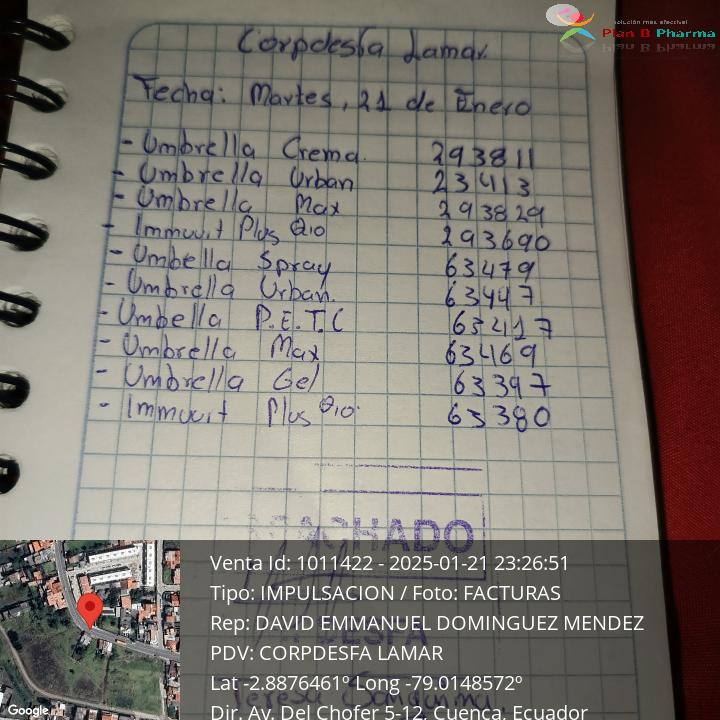 solución más efectiva!
Plan B Pharma
Corpdesfa Lamar.
Fecha: Martes, 21 de Enero
- Umbrella Crema. 293811
- Umbrella Urban 23413
- Umbrella Max 293829
- Immuvit Plus Q10 293690
- Umbella Spray 63479
- Umbrella Urban. 63447
- Umbella P.E.T.C 63417
- Umbrella Max 63469
- Umbrella Gel 63397
- Immuvit Plus Q10. 63380
MACHADO
Venta Id: 1011422 - 2025-01-21 23:26:51
Tipo: IMPULSACION / Foto: FACTURAS
Rep: DAVID EMMANUEL DOMINGUEZ MENDEZ
PDV: CORPDESFA LAMAR
Lat -2.8876461º Long -79.0148572º
Dir. Av. Del Chofer 5-12, Cuenca, Ecuador
Google